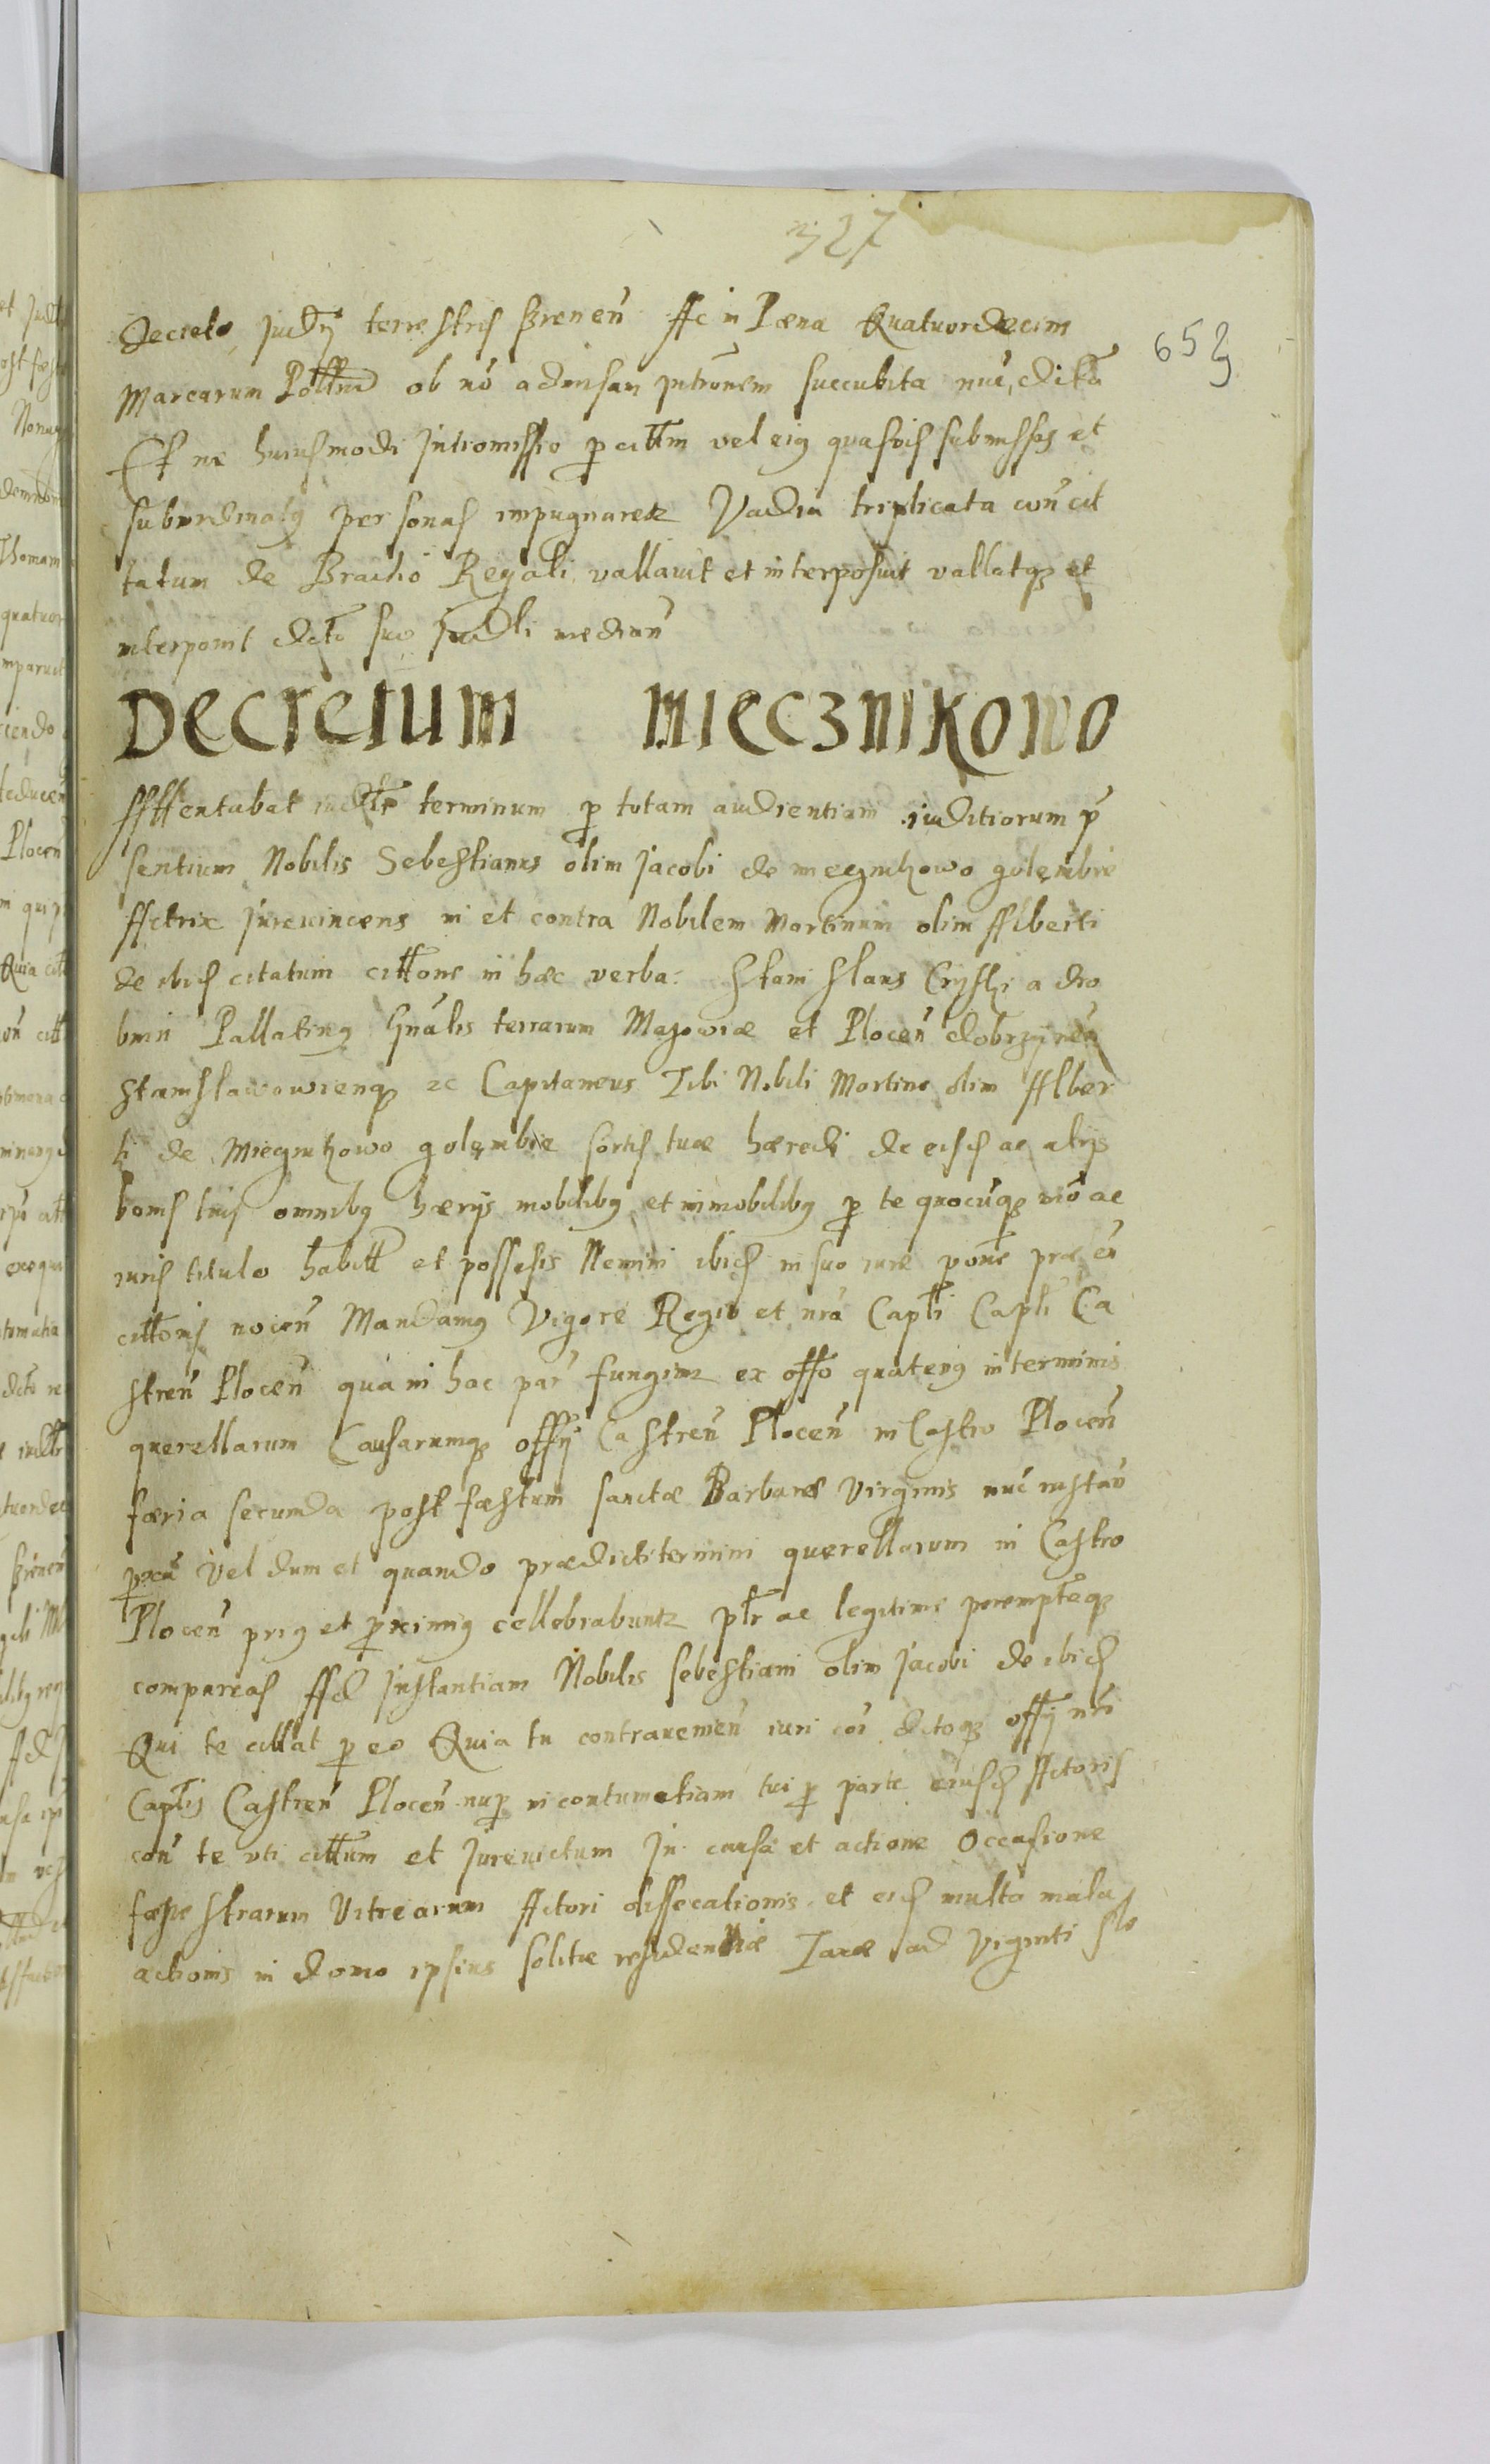 327
653
decreto judÿ terrestris Srenen Ac in Pæna Quatuordecim
Marcarum ob nõ admisam jntrõnem succubita
Et ne huiusmodi jntromissio p cittm vel eig quasvis submissas et
subordinatas personas impugnaretr Vadia triplicata con cit
tatum de Brachio Regali vallavit et interposuit vallatq et
interponit dcto suo Judli median
Decretum Miecznikowo
Assentabat terminum p totam audientiam iuditiorum p
sentium Nobilis Sebestianus olim Jacobi de miecznikowo golembie
Actrix jurevincens in et contra Nobilem Martinum olim Alberti
de ibid citatum cittone in hæc verba: Stanislaus Cryski a dro
bnin Pallating Gnalis terrarum Mazowiæ et Plocen dobrzynen
Stanislawowienq ec Capitaneus Tibi Nobili Martino olim Alber
ti de Miecznikowo golembie sortis tuæ hæredi de eisd ac alys
bonis tuis omnibg hærijs mobilibg et immobilibg p te quocuq mõ ac
iuris titulo habitt et possesis Nemini ibid in suo iure præsen
cittonis nocen Mandamg Vigore Regio et nra Captli Captli Ca
stren Plocen qua in hac par fungimr ex offo quateng in terminis
querellarum Causarumq offÿ Castren Plocen in Castro Plocen
færia secunda post fæstum sanctæ Barbaræ Virginis nuc instan
vel dum et quando prædicti termini querellarum in Castro
Plocen prig et pximig cellebrabuntr ptr ac legitime peremptæq
compareas Ad Instantiam Nobilis sebestiani olim Jacobi de ibid
Qui te cittat p eo Quia tu contravenien iuri coi dctoq offÿ nri
Captlis Castren Plocen nup in contumatiam tui p parte eiusd Actoris
con te uti cittum et jurevictum In causa et actione Occasione
fænestrarum Vitrearum Actori dissecationis et eisd multa mala
actionis in domo ipsius solitæ residentiæ Taxæ ad Viginti